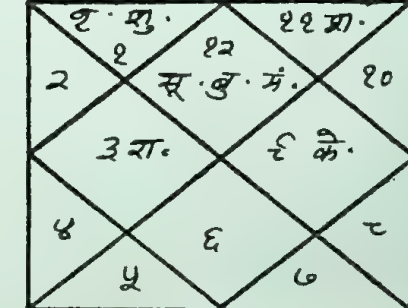 शु· ११ श·
१ १२
२ सू·बु·मं· १०
३ रा· ९ के·
४ ६ ८
५ ७